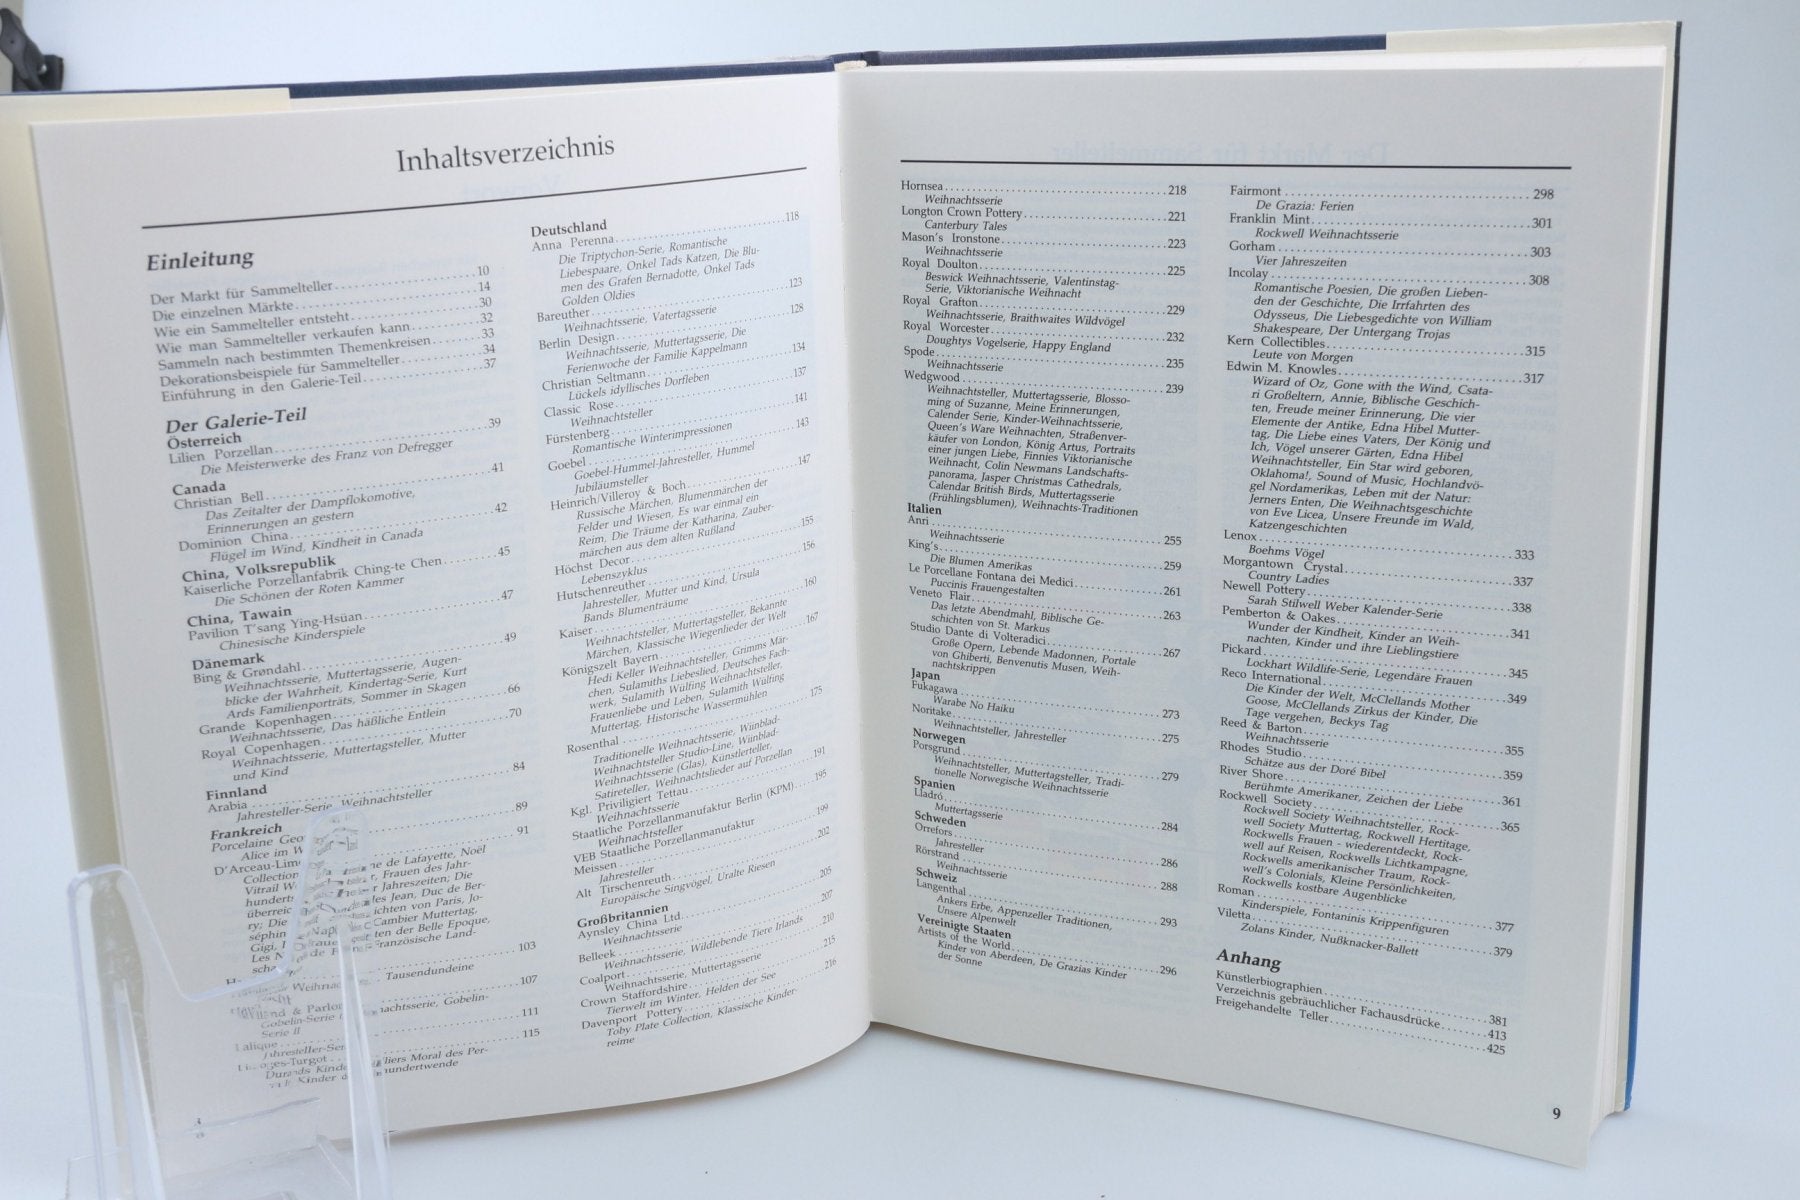 Inhaltsverzeichnis
Einleitung
Der Markt für Sammelteller 10
Die einzelnen Märkte 14
Wie ein Sammelteller entsteht 30
Wie man Sammelteller verkaufen kann 32
Sammeln nach bestimmten Themenkreisen 33
Dekorationsbeispiele für Sammelteller 34
Einführung in den Galerie-Teil 37
Der Galerie-Teil
Österreich
Lilien Porzellan 39
Die Meisterwerke des Franz von Defregger
Canada
Christian Bell 41
Das Zeitalter der Dampflokomotive,
Erinnerungen an gestern
Dominion China 42
Flügel im Wind, Kindheit in Canada
China, Volksrepublik
Kaiserliche Porzellanfabrik Ching-te Chen 45
Die Schönen der Roten Kammer
China, Tawain
Pavilion T'sang Ying-Hsüan 47
Chinesische Kinderspiele
Dänemark
Bing & Grøndahl 49
Weihnachtsserie, Muttertagsserie, Augen-
blicke der Wahrheit, Kindertag-Serie, Kurt
Ards Familienporträts, Sommer in Skagen
Grande Kopenhagen 66
Weihnachtsserie, Das häßliche Entlein
Royal Copenhagen 70
Weihnachtsserie, Muttertagsteller, Mutter
und Kind
Finnland
Arabia 84
Jahresteller-Serie, Weihnachtsteller
Frankreich
Porcelaine Geo 89
Alice im W
D'Arceau-Lim 91
Collection ne de Lafayette, Noël
Vitrail W r, Frauen des Jahr-
hundert r Jahreszeiten; Die
überreic les Jean, Duc de Ber-
ry; Die ichten von Paris, Jo-
séphin Cambier Muttertag,
Gigi, ten der Belle Epoque,
Les N Französische Land-
sch
103
Tausendundeine
107
land & Parlo nachtsserie, Gobelin-
Gobelin-Serie
Serie II
Lalique 111
Jahresteller-Se
Limoges-Turgot 115
Durands Kind liers Moral des Per-
Kinder d hundertwende
8
Deutschland
Anna Perenna 118
Die Triptychon-Serie, Romantische
Liebespaare, Onkel Tads Katzen, Die Blu-
men des Grafen Bernadotte, Onkel Tads
Golden Oldies
Bareuther 123
Weihnachtsserie, Vatertagsserie
Berlin Design 128
Weihnachtsserie, Muttertagsserie, Die
Ferienwoche der Familie Kappelmann
Christian Seltmann 134
Lückels idyllisches Dorfleben
Classic Rose 137
Weihnachtsteller
Fürstenberg 141
Romantische Winterimpressionen
Goebel 143
Goebel-Hummel-Jahresteller, Hummel
Jubiläumsteller
Heinrich/Villeroy & Boch 147
Russische Märchen, Blumenmärchen der
Felder und Wiesen, Es war einmal ein
Reim, Die Träume der Katharina, Zauber-
märchen aus dem alten Rußland
Höchst Decor 155
Lebenszyklus
Hutschenreuther 156
Jahresteller, Mutter und Kind, Ursula
Bands Blumenträume
Kaiser 160
Weihnachtsteller, Muttertagsteller, Bekannte
Märchen, Klassische Wiegenlieder der Welt
Königszelt Bayern 167
Hedi Keller Weihnachtsteller, Grimms Mär-
chen, Sulamiths Liebeslied, Deutsches Fach-
werk, Sulamith Wülfing Weihnachtsteller,
Frauenliebe und Leben, Sulamith Wülfing
Muttertag, Historische Wassermühlen
Rosenthal 175
Traditionelle Weihnachtsserie, Wiinblad-
Weihnachtsteller Studio-Line, Wiinblad-
Weihnachtsserie (Glas), Künstlerteller,
Satireteller, Weihnachtslieder auf Porzellan
Kgl. Priviligiert Tettau 191
Weihnachtsserie
Staatliche Porzellanmanufaktur Berlin (KPM) 195
Weihnachtsteller
VEB Staatliche Porzellanmanufaktur
Meissen 199
Jahresteller
Alt Tirschenreuth 202
Europäische Singvögel, Uralte Riesen
Großbritannien
Aynsley China Ltd. 205
Weihnachtsserie
Belleek 207
Weihnachtsserie, Wildlebende Tiere Irlands
Coalport 210
Weihnachtsserie, Muttertagsserie
Crown Staffordshire 215
Tierwelt im Winter, Helden der See
Davenport Pottery 216
Toby Plate Collection, Klassische Kinder-
reime
Hornsea 218
Weihnachtsserie
Longton Crown Pottery 221
Canterbury Tales
Mason's Ironstone 223
Weihnachtsserie
Royal Doulton 225
Beswick Weihnachtsserie, Valentinstag-
Serie, Viktorianische Weihnacht
Royal Grafton 229
Weihnachtsserie, Braithwaites Wildvögel
Royal Worcester 232
Doughtys Vogelserie, Happy England
Spode 235
Weihnachtsserie
Wedgwood 239
Weihnachtsteller, Muttertagsserie, Blosso-
ming of Suzanne, Meine Erinnerungen,
Calender Serie, Kinder-Weihnachtsserie,
Queen's Ware Weihnachten, Straßenver-
käufer von London, König Artus, Portraits
einer jungen Liebe, Finnies Viktorianische
Weihnacht, Colin Newmans Landschafts-
panorama, Jasper Christmas Cathedrals,
Calendar British Birds, Muttertagsserie
(Frühlingsblumen), Weihnachts-Traditionen
Italien
Anri 255
Weihnachtsserie
King's 259
Die Blumen Amerikas
Le Porcellane Fontana dei Medici 261
Puccinis Frauengestalten
Veneto Flair 263
Das letzte Abendmahl, Biblische Ge-
schichten von St. Markus
Studio Dante di Volteradici 267
Große Opern, Lebende Madonnen, Portale
von Ghiberti, Benvenutis Musen, Weih-
nachtskrippen
Japan
Fukagawa 273
Warabe No Haiku
Noritake 275
Weihnachtsteller, Jahresteller
Norwegen
Porsgrund 279
Weihnachtsteller, Muttertagsteller, Tradi-
tionelle Norwegische Weihnachtsserie
Spanien
Lladró 284
Muttertagsserie
Schweden
Orrefors 286
Jahresteller
Rörstrand 288
Weihnachtsserie
Schweiz
Langenthal 293
Ankers Erbe, Appenzeller Traditionen,
Unsere Alpenwelt
Vereinigte Staaten
Artists of the World 296
Kinder von Aberdeen, De Grazias Kinder
der Sonne
Fairmont 298
De Grazia: Ferien
Franklin Mint 301
Rockwell Weihnachtsserie
Gorham 303
Vier Jahreszeiten
Incolay 308
Romantische Poesien, Die großen Lieben-
den der Geschichte, Die Irrfahrten des
Odysseus, Die Liebesgedichte von William
Shakespeare, Der Untergang Trojas
Kern Collectibles 315
Leute von Morgen
Edwin M. Knowles 317
Wizard of Oz, Gone with the Wind, Csata-
ri Großeltern, Annie, Biblische Geschich-
ten, Freude meiner Erinnerung, Die vier
Elemente der Antike, Edna Hibel Mutter-
tag, Die Liebe eines Vaters, Der König und
Ich, Vögel unserer Gärten, Edna Hibel
Weihnachtsteller, Ein Star wird geboren,
Oklahoma!, Sound of Music, Hochlandvö-
gel Nordamerikas, Leben mit der Natur:
Jerners Enten, Die Weihnachtsgeschichte
von Eve Licea, Unsere Freunde im Wald,
Katzengeschichten
Lenox 333
Boehms Vögel
Morgantown Crystal 337
Country Ladies
Newell Pottery 338
Sarah Stilwell Weber Kalender-Serie
Pemberton & Oakes 341
Wunder der Kindheit, Kinder an Weih-
nachten, Kinder und ihre Lieblingstiere
Pickard 345
Lockhart Wildlife-Serie, Legendäre Frauen
Reco International 349
Die Kinder der Welt, McClellands Mother
Goose, McClellands Zirkus der Kinder, Die
Tage vergehen, Beckys Tag
Reed & Barton 355
Weihnachtsserie
Rhodes Studio 359
Schätze aus der Doré Bibel
River Shore 361
Berühmte Amerikaner, Zeichen der Liebe
Rockwell Society 365
Rockwell Society Weihnachtsteller, Rock-
well Society Muttertag, Rockwell Hertitage,
Rockwells Frauen - wiederentdeckt, Rock-
well auf Reisen, Rockwells Lichtkampagne,
Rockwells amerikanischer Traum, Rock-
well's Colonials, Kleine Persönlichkeiten,
Rockwells kostbare Augenblicke
Roman 377
Kinderspiele, Fontaninis Krippenfiguren
Viletta 379
Zolans Kinder, Nußknacker-Ballett
Anhang
Künstlerbiographien 381
Verzeichnis gebräuchlicher Fachausdrücke 413
Freigehandelte Teller 425
9